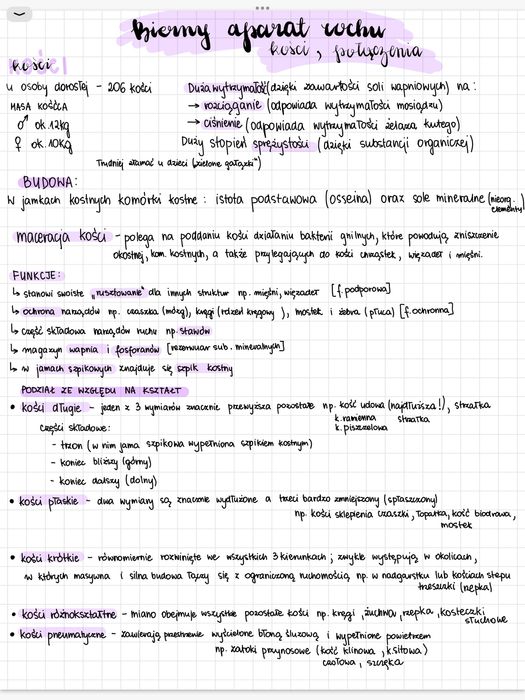 Bierny aparat ruchu
kości, połączenia
kości
KOŚCI
u osoby dorosłej - 206 kości
MASA KOŚĆCA
♂ ok. 12kg
♀ ok. 10kg
Duża wytrzymałość (dzięki zawartości soli wapniowych) na:
→ rozciąganie (odpowiada wytrzymałości mosiądzu)
→ ciśnienie (odpowiada wytrzymałości żelaza kutego)
Duży stopień sprężystości (dzięki substancji organicznej)
Trudniej złamać u dzieci („zielone gałązki")
BUDOWA:
w jamkach kostnych komórki kostne : istota podstawowa (osseina) oraz sole mineralne (nieorg. elementy)
maceracja kości - polega na poddaniu kości działaniu bakterii gnilnych, które powodują zniszczenie
okostnej, kom. kostnych, a także przylegających do kości chrząstek, więzadeł i mięśni.
FUNKCJE:
↳ stanowi swoiste „rusztowanie" dla innych struktur np. mięśni, więzadeł [f. podporowa]
↳ ochrona narządów np. czaszka (mózg), kręgi (rdzeń kręgowy), mostek i żebra (płuca) [f. ochronna]
↳ część składowa narządów ruchu np. stawów
↳ magazyn wapnia i fosforanów [rezerwuar sub. mineralnych]
↳ w jamach szpikowych znajduje się szpik kostny
PODZIAŁ ZE WZGLĘDU NA KSZTAŁT
• kości długie - jeden z 3 wymiarów znacznie przewyższa pozostałe np. kość udowa (najdłuższa!), strzałka
k. ramienna strzałka
k. piszczelowa
części składowe:
- trzon (w nim jama szpikowa wypełniona szpikiem kostnym)
- koniec bliższy (górny)
- koniec dalszy (dolny)
• kości płaskie - dwa wymiary są znacznie wydłużone a trzeci bardzo zmniejszony (spłaszczony)
np. kości sklepienia czaszki, łopatka, kość biodrowa,
mostek
• kości krótkie - równomiernie rozwinięte we wszystkich 3 kierunkach ; zwykle występują w okolicach,
w których masywna i silna budowa łączy się z ograniczoną ruchomością, np. w nadgarstku lub kościach stępu
trzeszczki (rzepka)
• kości różnokształtne - miano obejmuje wszystkie pozostałe kości np. kręgi, żuchwa, rzepka, kosteczki
słuchowe
• kości pneumatyczne - zawierają przestrzenie wyścielone błoną śluzową i wypełnione powietrzem
np. zatoki przynosowe (kość klinowa, k. sitowa)
czołowa, szczęka